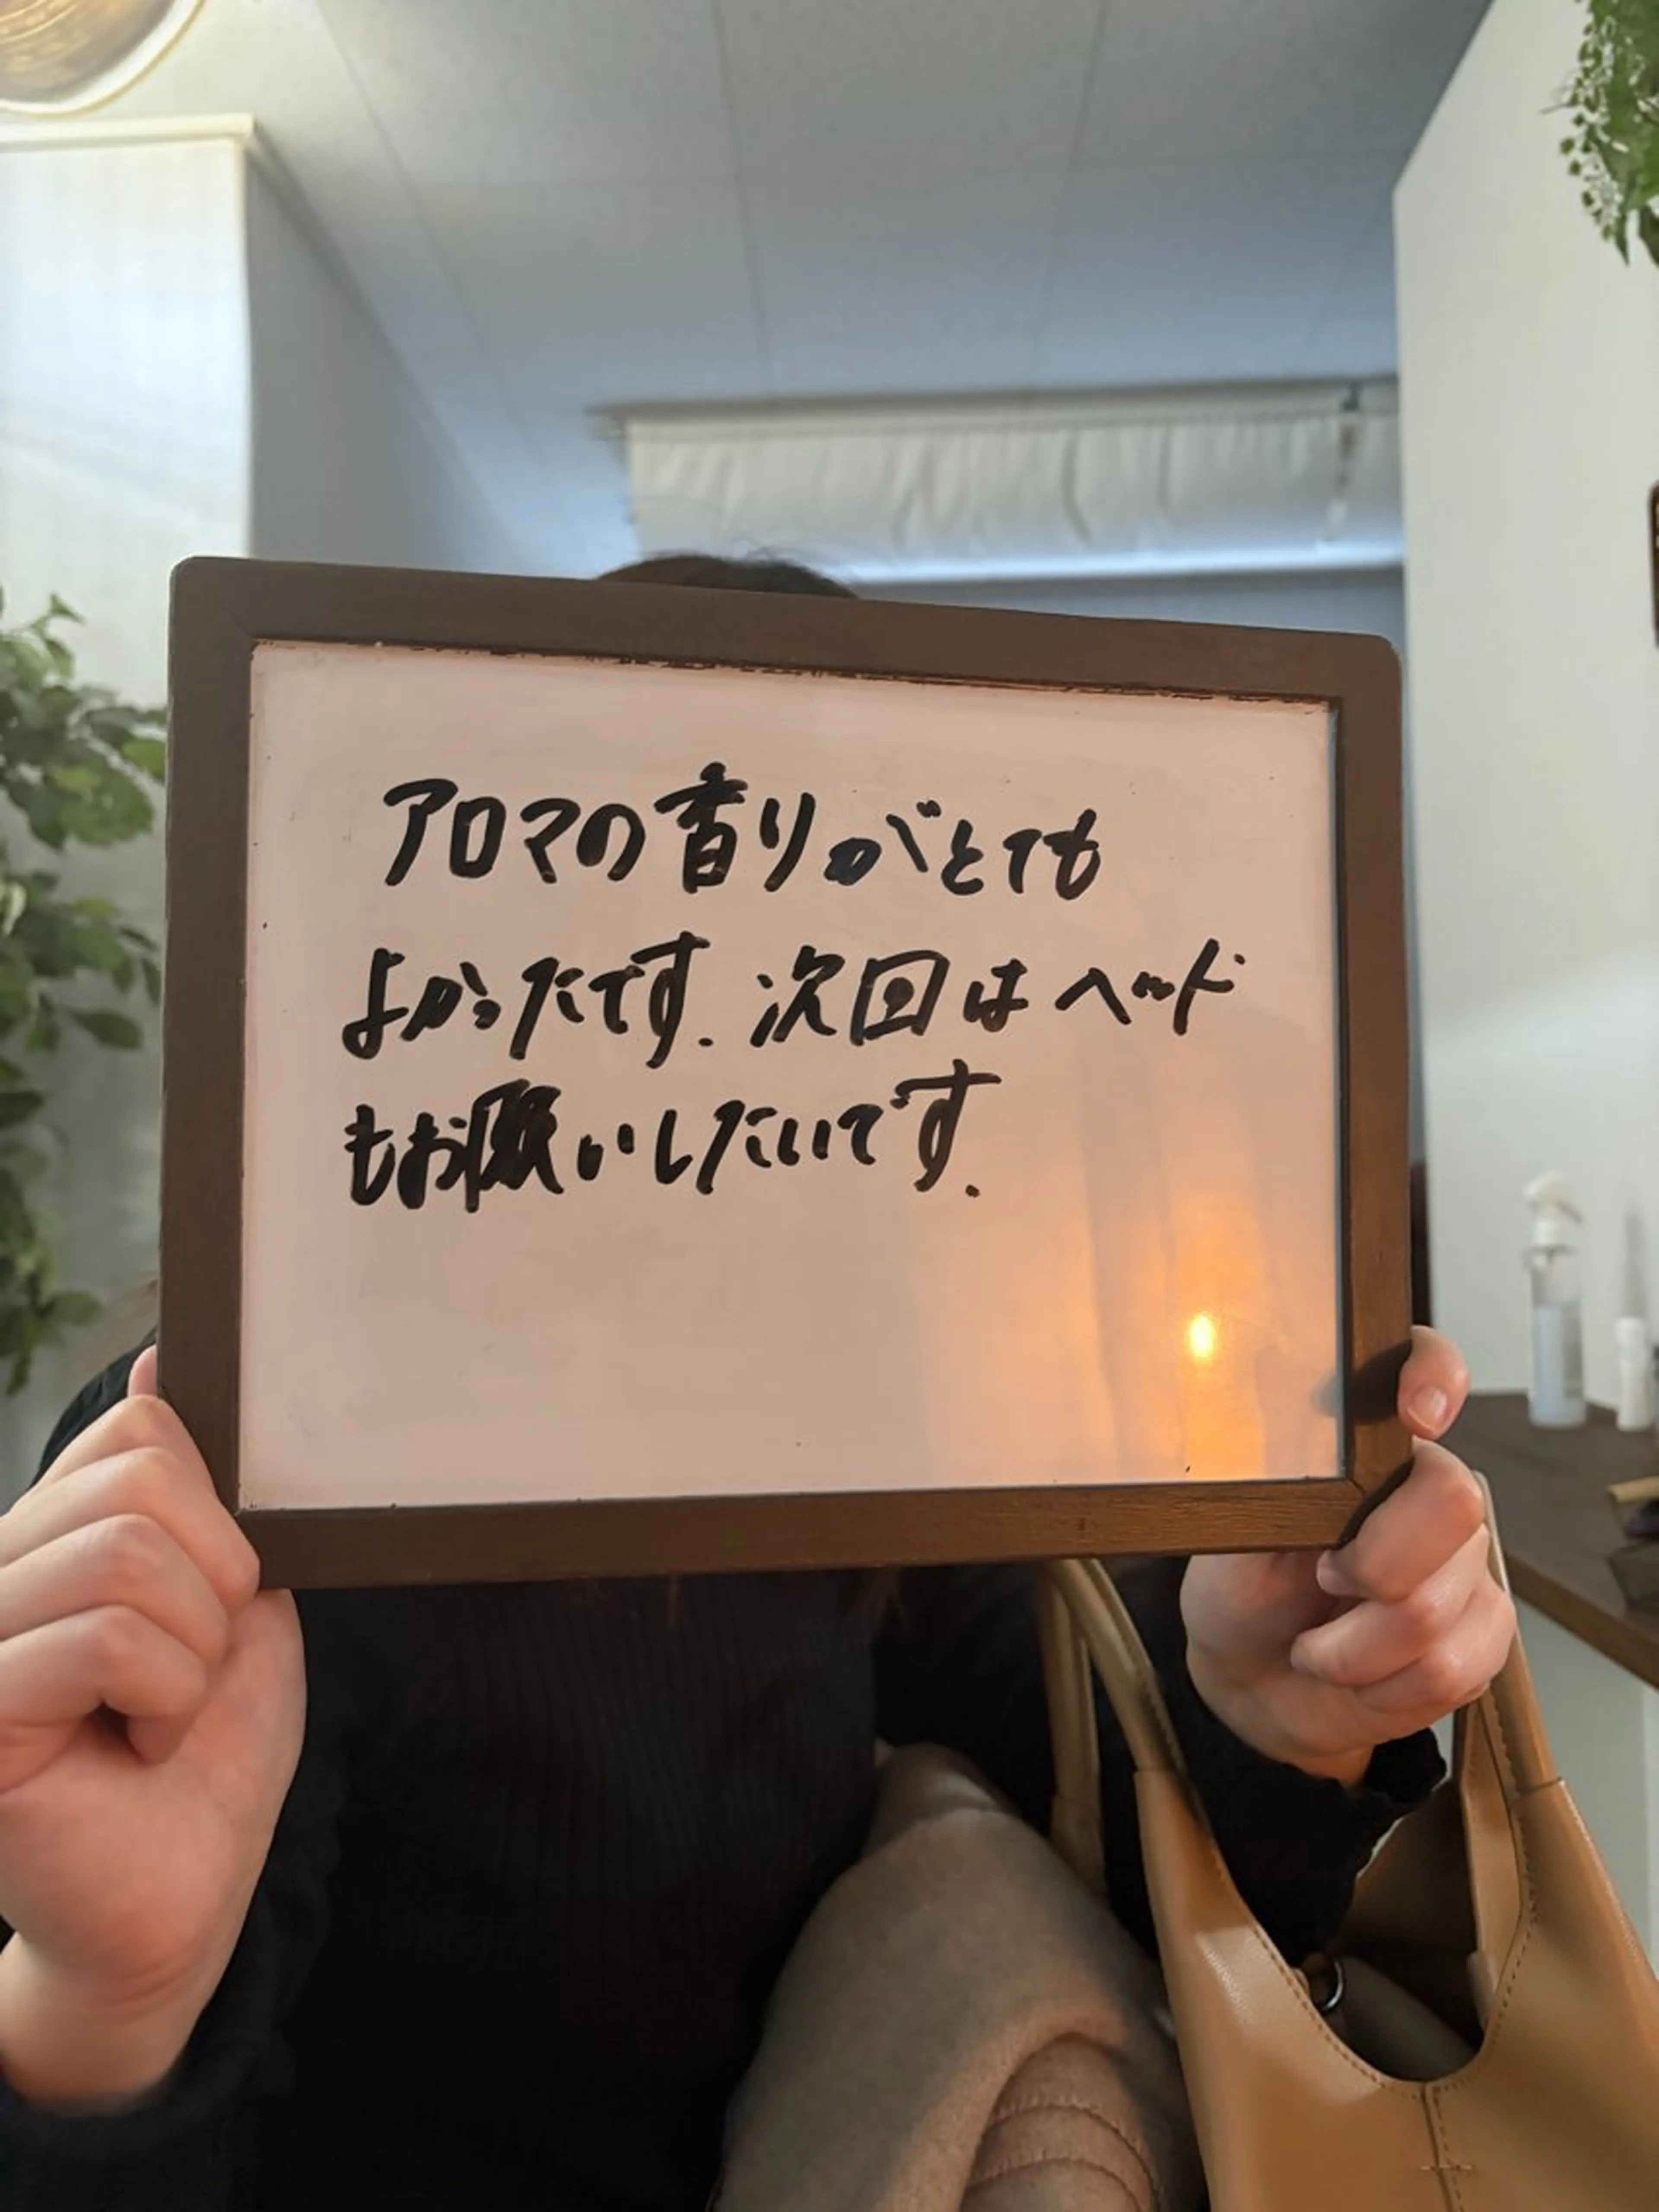 アロマの香りがとても
よかったです. 次回はヘッド
もお願いしたいです.